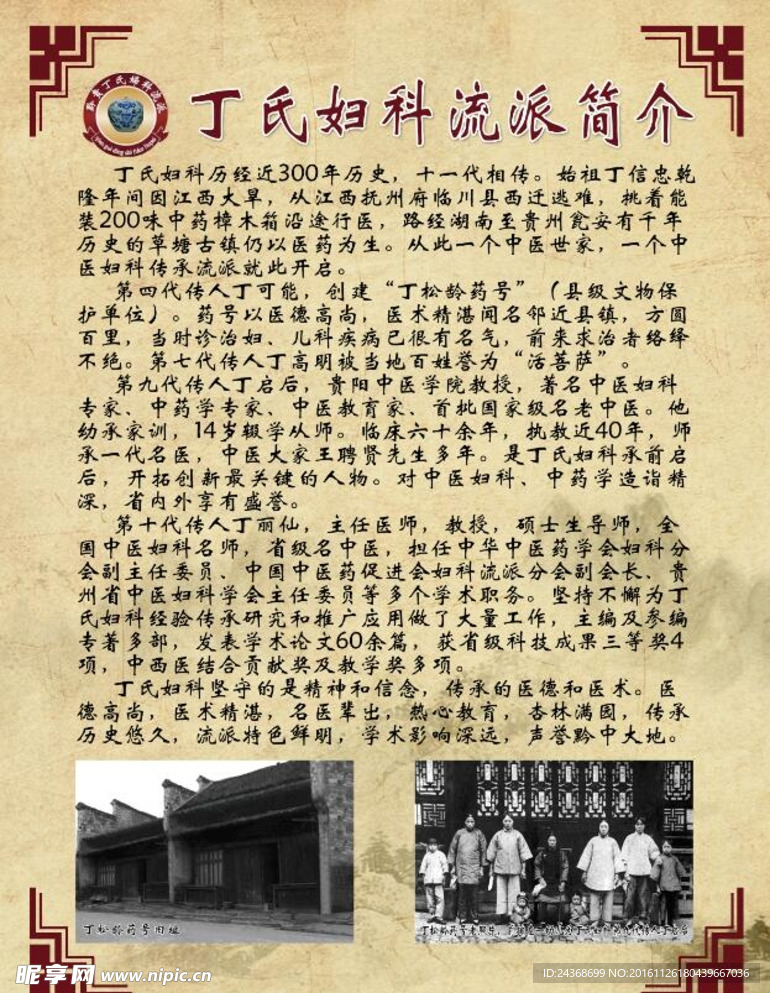 黔贵丁氏妇科流派
丁氏妇科流派简介
丁氏妇科历经近300年历史，十一代相传。始祖丁信忠乾
隆年间因江西大旱，从江西抚州府临川县西迁逃难，挑着能
装200味中药樟木箱沿途行医，路经湖南至贵州瓮安有千年
历史的草塘古镇仍以医药为生。从此一个中医世家，一个中
医妇科传承流派就此开启。
第四代传人丁可能，创建“丁松龄药号”（县级文物保
护单位）。药号以医德高尚，医术精湛闻名邻近县镇，方圆
百里，当时诊治妇、儿科疾病已很有名气，前来求治者络绎
不绝。第七代传人丁高明被当地百姓誉为“活菩萨”。
第九代传人丁启后，贵阳中医学院教授，著名中医妇科
专家、中药学专家、中医教育家、首批国家级名老中医。他
幼承家训，14岁辍学从师。临床六十余年，执教近40年，师
承一代名医，中医大家王聘贤先生多年。是丁氏妇科承前启
后，开拓创新最关键的人物。对中医妇科、中药学造诣精
深，省内外享有盛誉。
第十代传人丁丽仙，主任医师，教授，硕士生导师，全
国中医妇科名师，省级名中医，担任中华中医药学会妇科分
会副主任委员、中国中医药促进会妇科流派分会副会长、贵
州省中医妇科学会主任委员等多个学术职务。坚持不懈为丁
氏妇科经验传承研究和推广应用做了大量工作，主编及参编
专著多部，发表学术论文60余篇，获省级科技成果三等奖4
项，中西医结合贡献奖及教学奖多项。
丁氏妇科坚守的是精神和信念，传承的医德和医术。医
德高尚，医术精湛，名医辈出，热心教育，杏林满园，传承
历史悠久，流派特色鲜明，学术影响深远，声誉黔中大地。
丁松龄药号旧址
丁松龄药号老照片，
昵享网 www.nipic.cn
ID:24368699 NO:20161126180439667036